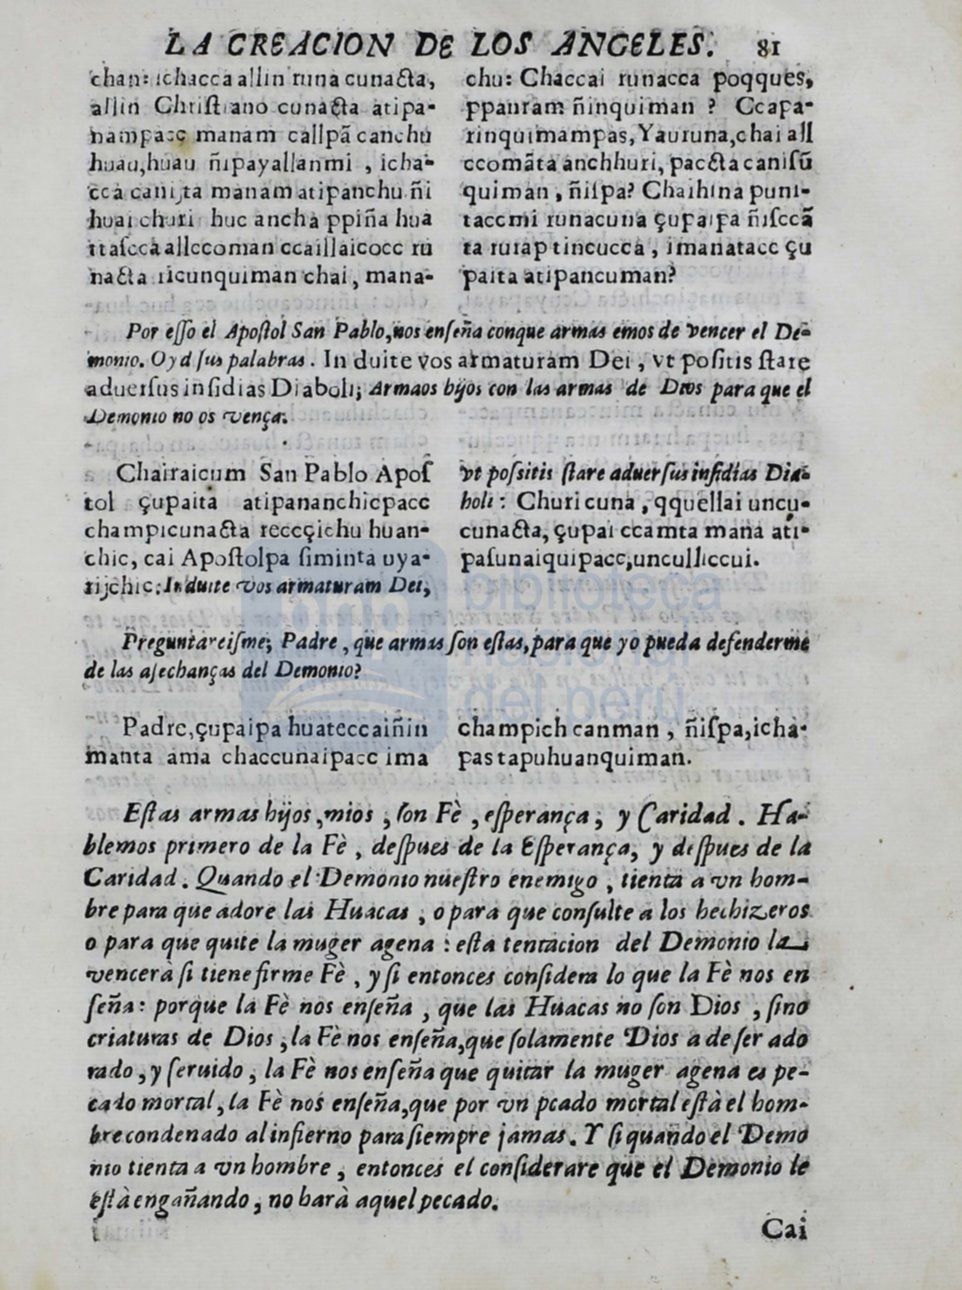 LA CREACION DE LOS ANGELES. 81
chan: ichacca allin runa cunacta,
allin Christiano cunacta atipa-
nampacç manam callpã canchu
huau, huau ñipayallanmi, icha-
cca canijta manam atipanchu ñi
huai churi huc ancha ppiña hua
ttaſcca allccoman ccaillaicocc ru
nacta ricunquiman chai, mana-
chu: Chaccai runacca poqques,
ppanram ñinquiman ? Ccapa-
rinquimampas, Yauruna, chai all
ccomãta anchhuri, pacta caniſũ
quiman, ñiſpa? Chaihina puni-
taccmi runacuna çupaipa ñiſccã
ta rurap tincucca, imanatacc çu
paita atipancuman?
Por eſſo el Apoſtol San Pablo, nos enſeña conque armas emos de vencer el De-
monio. Oyd ſus palabras. In duite vos armaturam Dei, vt poſitis ſtare
aduerſus inſidias Diabolj; Armaos hijos con las armas de Dios para que el
Demonio no os vença.
Chairaicum San Pablo Apoſ
tol çupaita atipananchicpacc
champicunacta reccçichu huan-
chic, cai Apoſtolpa ſiminta uya-
rijchic: Induite vos armaturam Dei,
vt poſsitis ſtare aduerſus inſidias Dia-
boli: Churi cuna, qquellai uncu-
cunacta, çupai ccamta mana ati-
paſunaiquipacc, unculliccui.
Preguntareiſme; Padre, que armas ſon eſtas, para que yo pueda defenderme
de las aſechanças del Demonio?
Padre, çupaipa huateccaiñin
manta ama chaccunaipacc ima
champich canman, ñiſpa, icha-
pas tapuhuanquiman.
Eſtas armas hijos, mios, ſon Fè, eſperança, y Caridad. Ha-
blemos primero de la Fè, deſpues de la Eſperança, y deſpues de la
Caridad. Quando el Demonio nueſtro enemigo, tienta a vn hom-
bre para que adore las Huacas, o para que conſulte a los hechizeros
o para que quite la muger agena: eſta tentacion del Demonio la
vencerà ſi tiene firme Fè, y ſi entonces conſidera lo que la Fè nos en
ſeña: porque la Fè nos enſeña, que las Huacas no ſon Dios, ſino
criaturas de Dios, la Fè nos enſeña, que ſolamente Dios a de ſer ado
rado, y ſeruido, la Fè nos enſeña que quitar la muger agena es pe-
cado mortal, la Fè nos enſeña, que por vn pcado mortal eſtà el hom-
bre condenado al infierno para ſiempre jamas. Y ſi quando el Demo
nio tienta a vn hombre, entonces el conſiderare que el Demonio le
eſtà engañando, no harà aquel pecado.
Cai
biblioteca
nacional
del perú